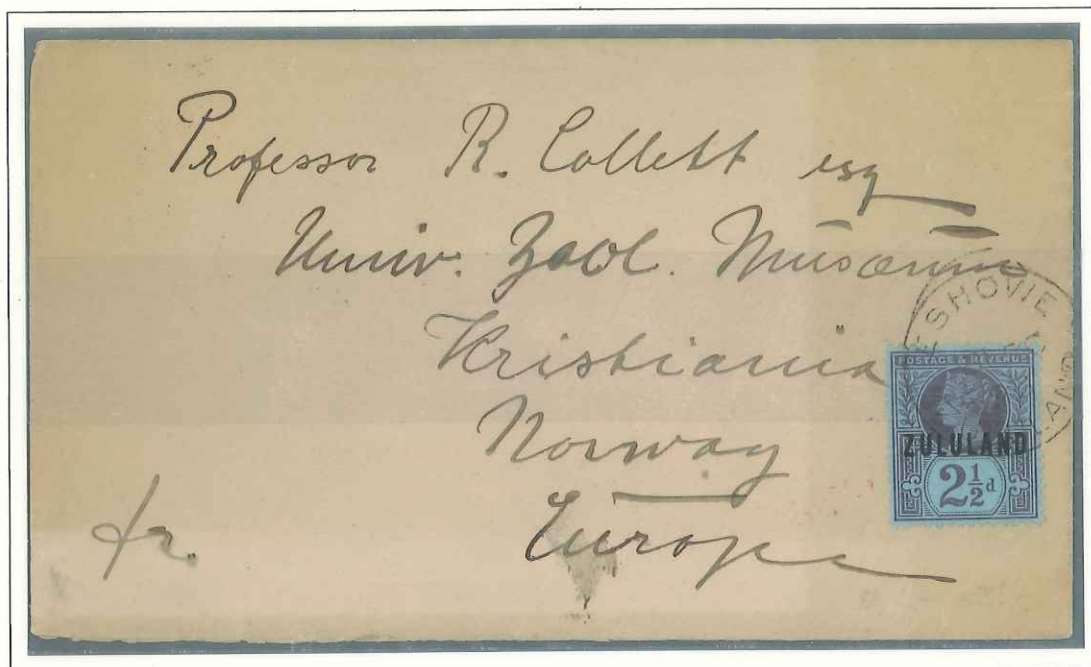 Professor R. Collett esq
Univ. Zool. Musæum
Kristiania
Norway
fr. Europe
ESHOWE
POSTAGE & REVENUE
ZULULAND
2½d